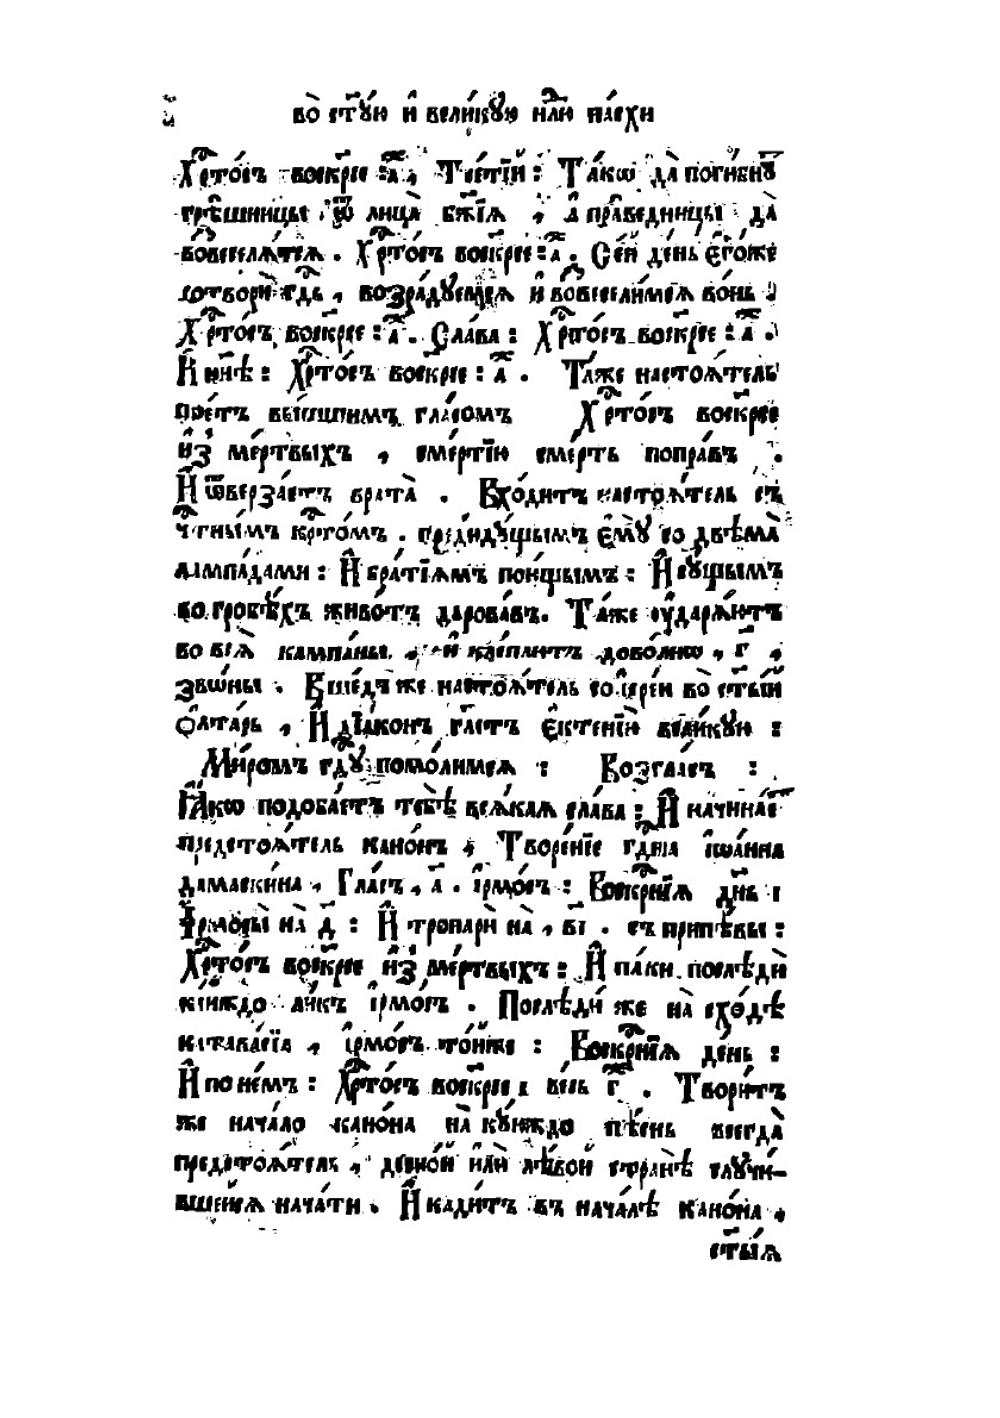 во̀ ст҃ꙋю и҆ вели́кꙋю нлⷣю па́схи
Хрⷭ҇то́съ воскр҃се : а҃ , Тре́тїй : Та́кѡ да̀ поги́бнꙋⷮ
грѣ̑шницы ѿ лица̀ бж҃їѧ , а҆ пра́ведницы да̀
вᲂзвеселѧ́тсѧ . Хрⷭ҇то́съ воскр҃се : а҃ . Се́й де́нь є҆го́же
сотворѝ гдⷭ҇ь , возра́дꙋемсѧ и҆ возвесели́мсѧ во́нь :
Хрⷭ҇то́съ воскр҃се : а҃ . Сла́ва : Хрⷭ҇то́съ воскр҃се : а҃ .
И҆ ны́нѣ : Хрⷭ҇то́съ воскр҃се : а҃ . Та́же настоѧ́тель
пое́тъ вы́сшимъ гла́сомъ Хрⷭ҇то́съ воскр҃се
и҆з̾ ме́ртвыхъ , сме́ртїю сме́рть попра́въ .
И҆ ѿверза́етъ врата̀ . Вхо́дитъ настоѧ́тель съ
чⷭ҇тны́мъ крⷭ҇то́мъ . предидꙋ́щымъ є҆мꙋ̀ со двѣма̀
лампа́дами : И҆ бра́тїѧмъ пою́щымъ : И҆ сꙋ́щымъ
во гробѣ́хъ живо́тъ дарова́въ . Та́же ᲂу҆дарѧ́ютъ
во всѧ̀ кампа́ны , и҆ клеплю́тъ дово́лнѡ , г҃ ,
зво́ны . Вше́дъ же настоѧ́тель со і҆ере́и во̀ ст҃ы́й
ѻ҆лта́рь , И҆ дїа́конъ гл҃етъ є҆ктенїю̀ вели́кꙋю :
Ми́ромъ гдⷭ҇ꙋ помо́лимсѧ : Возгла́съ :
Ꙗ҆́кѡ подоба́етъ тебѣ̀ всѧ́каѧ сла́ва : И҆ начина́еⷮ
предстоѧ́тель кано́нъ , Творе́нїе гдⷭ҇на і҆ѡа́нна
дамаски́на , Гла́съ , а҃ . і҆рмо́съ : Воскрⷭ҇нїѧ дн҃ь :
І҆рмосы̀ на̀ д҃ : И҆ тропарѝ на̀ , в҃і . съ припѣ́вы :
Хрⷭ҇то́съ воскр҃се и҆з̾ ме́ртвыхъ : И҆ па́ки послѣдѝ
кі́йждо ли́къ і҆рмо́съ . Послѣди́ же на̀ схо́дѣ
катава́сїа , і҆рмо́съ то́йже : Воскрⷭ҇нїѧ де́нь :
И҆ по не́мъ : Хрⷭ҇то́съ воскр҃се : ве́сь г҃ . Твори́тъ
же нача́ло кано́на на̀ кꙋ́юждо пѣ́снь всегда̀
предстоѧ́тель , десно́й и҆лѝ лѣ́вой странѣ̀ слꙋчи́-
вшейсѧ нача́ти . И҆ кади́тъ въ нача́лѣ кано́на ,
ст҃ы́ѧ